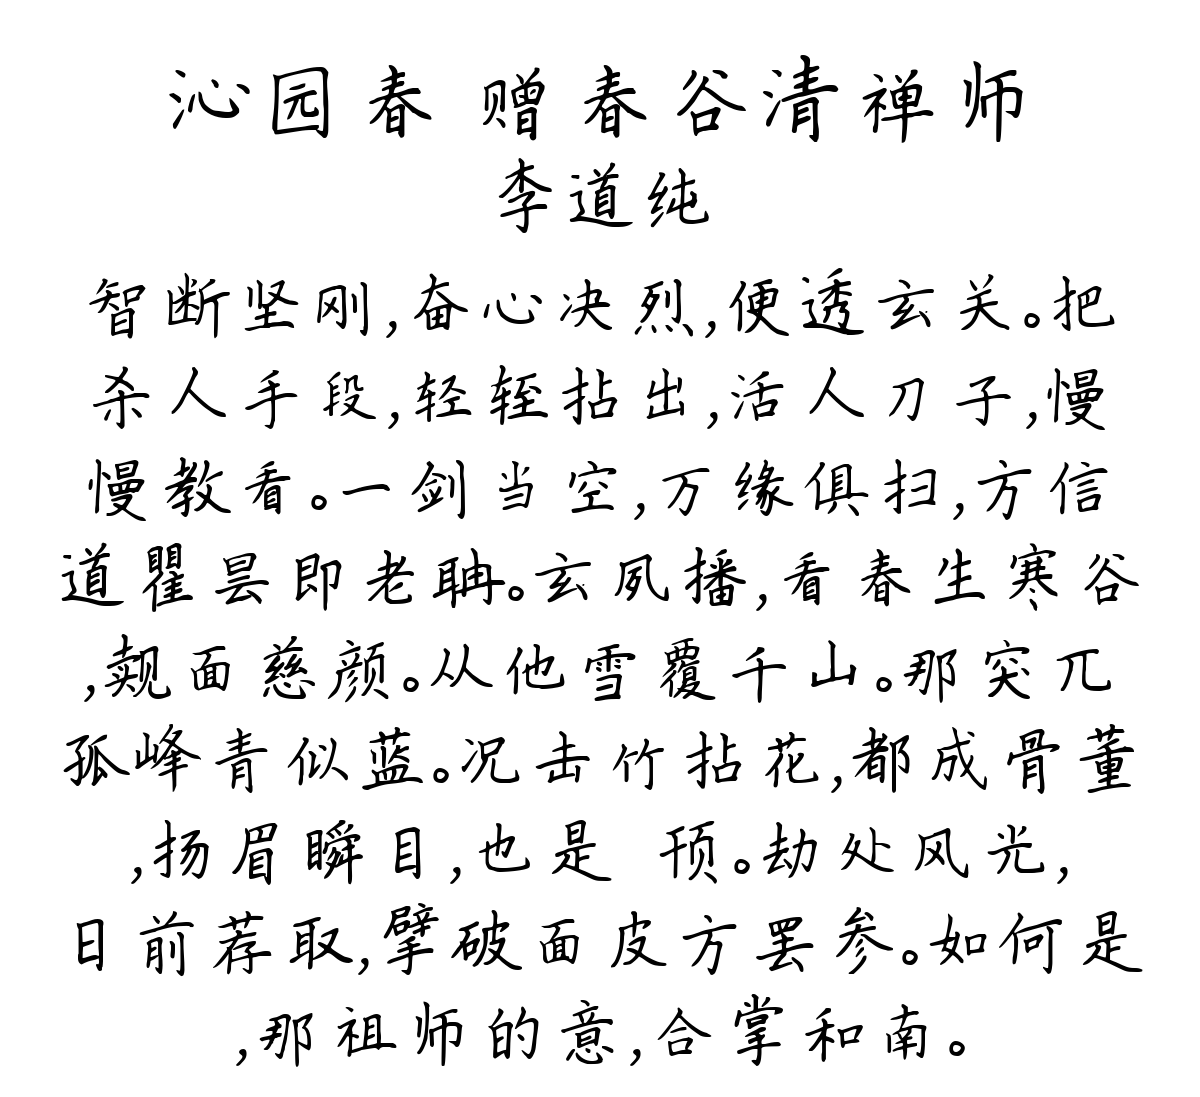 沁园春 赠春谷清禅师
李道纯
智断坚刚,奋心决烈,便透玄关。把
杀人手段,轻轾拈出,活人刀子,慢
慢教看。一剑当空,万缘俱扫,方信
道瞿昙即老聃。玄夙播,看春生寒谷
,觌面慈颜。从他雪覆千山。那突兀
孤峰青似蓝。况击竹拈花,都成骨董
,扬眉瞬目,也是 顸。劫处风光,
日前荐取,擘破面皮方罢参。如何是
,那祖师的意,合掌和南。